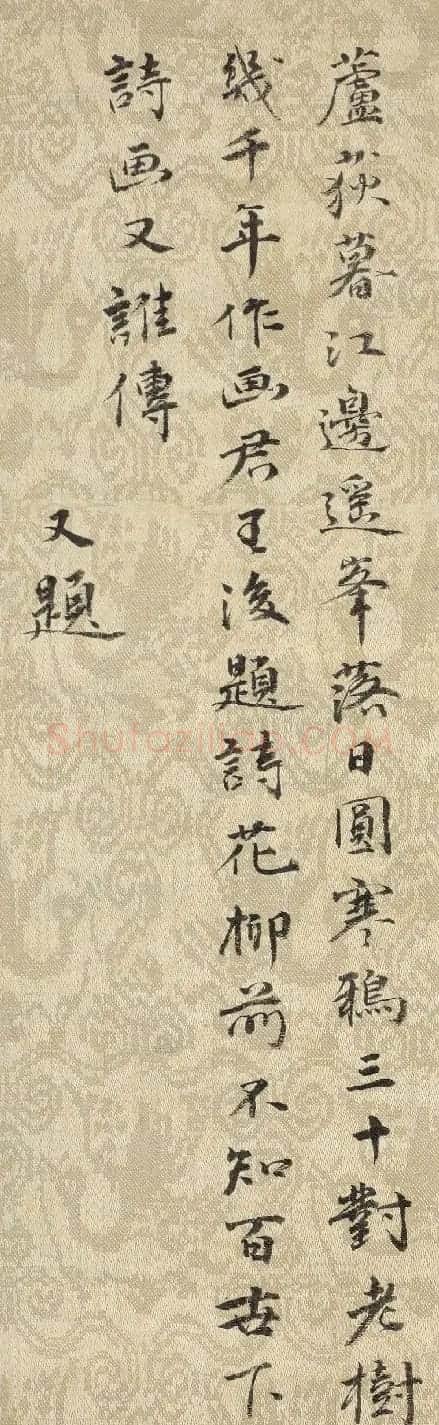 蘆荻暮江邊遥峯落日圓寒鴉三十對老樹
幾千年作画君王後題詩花柳前不知百世下
詩画又誰傳
又題